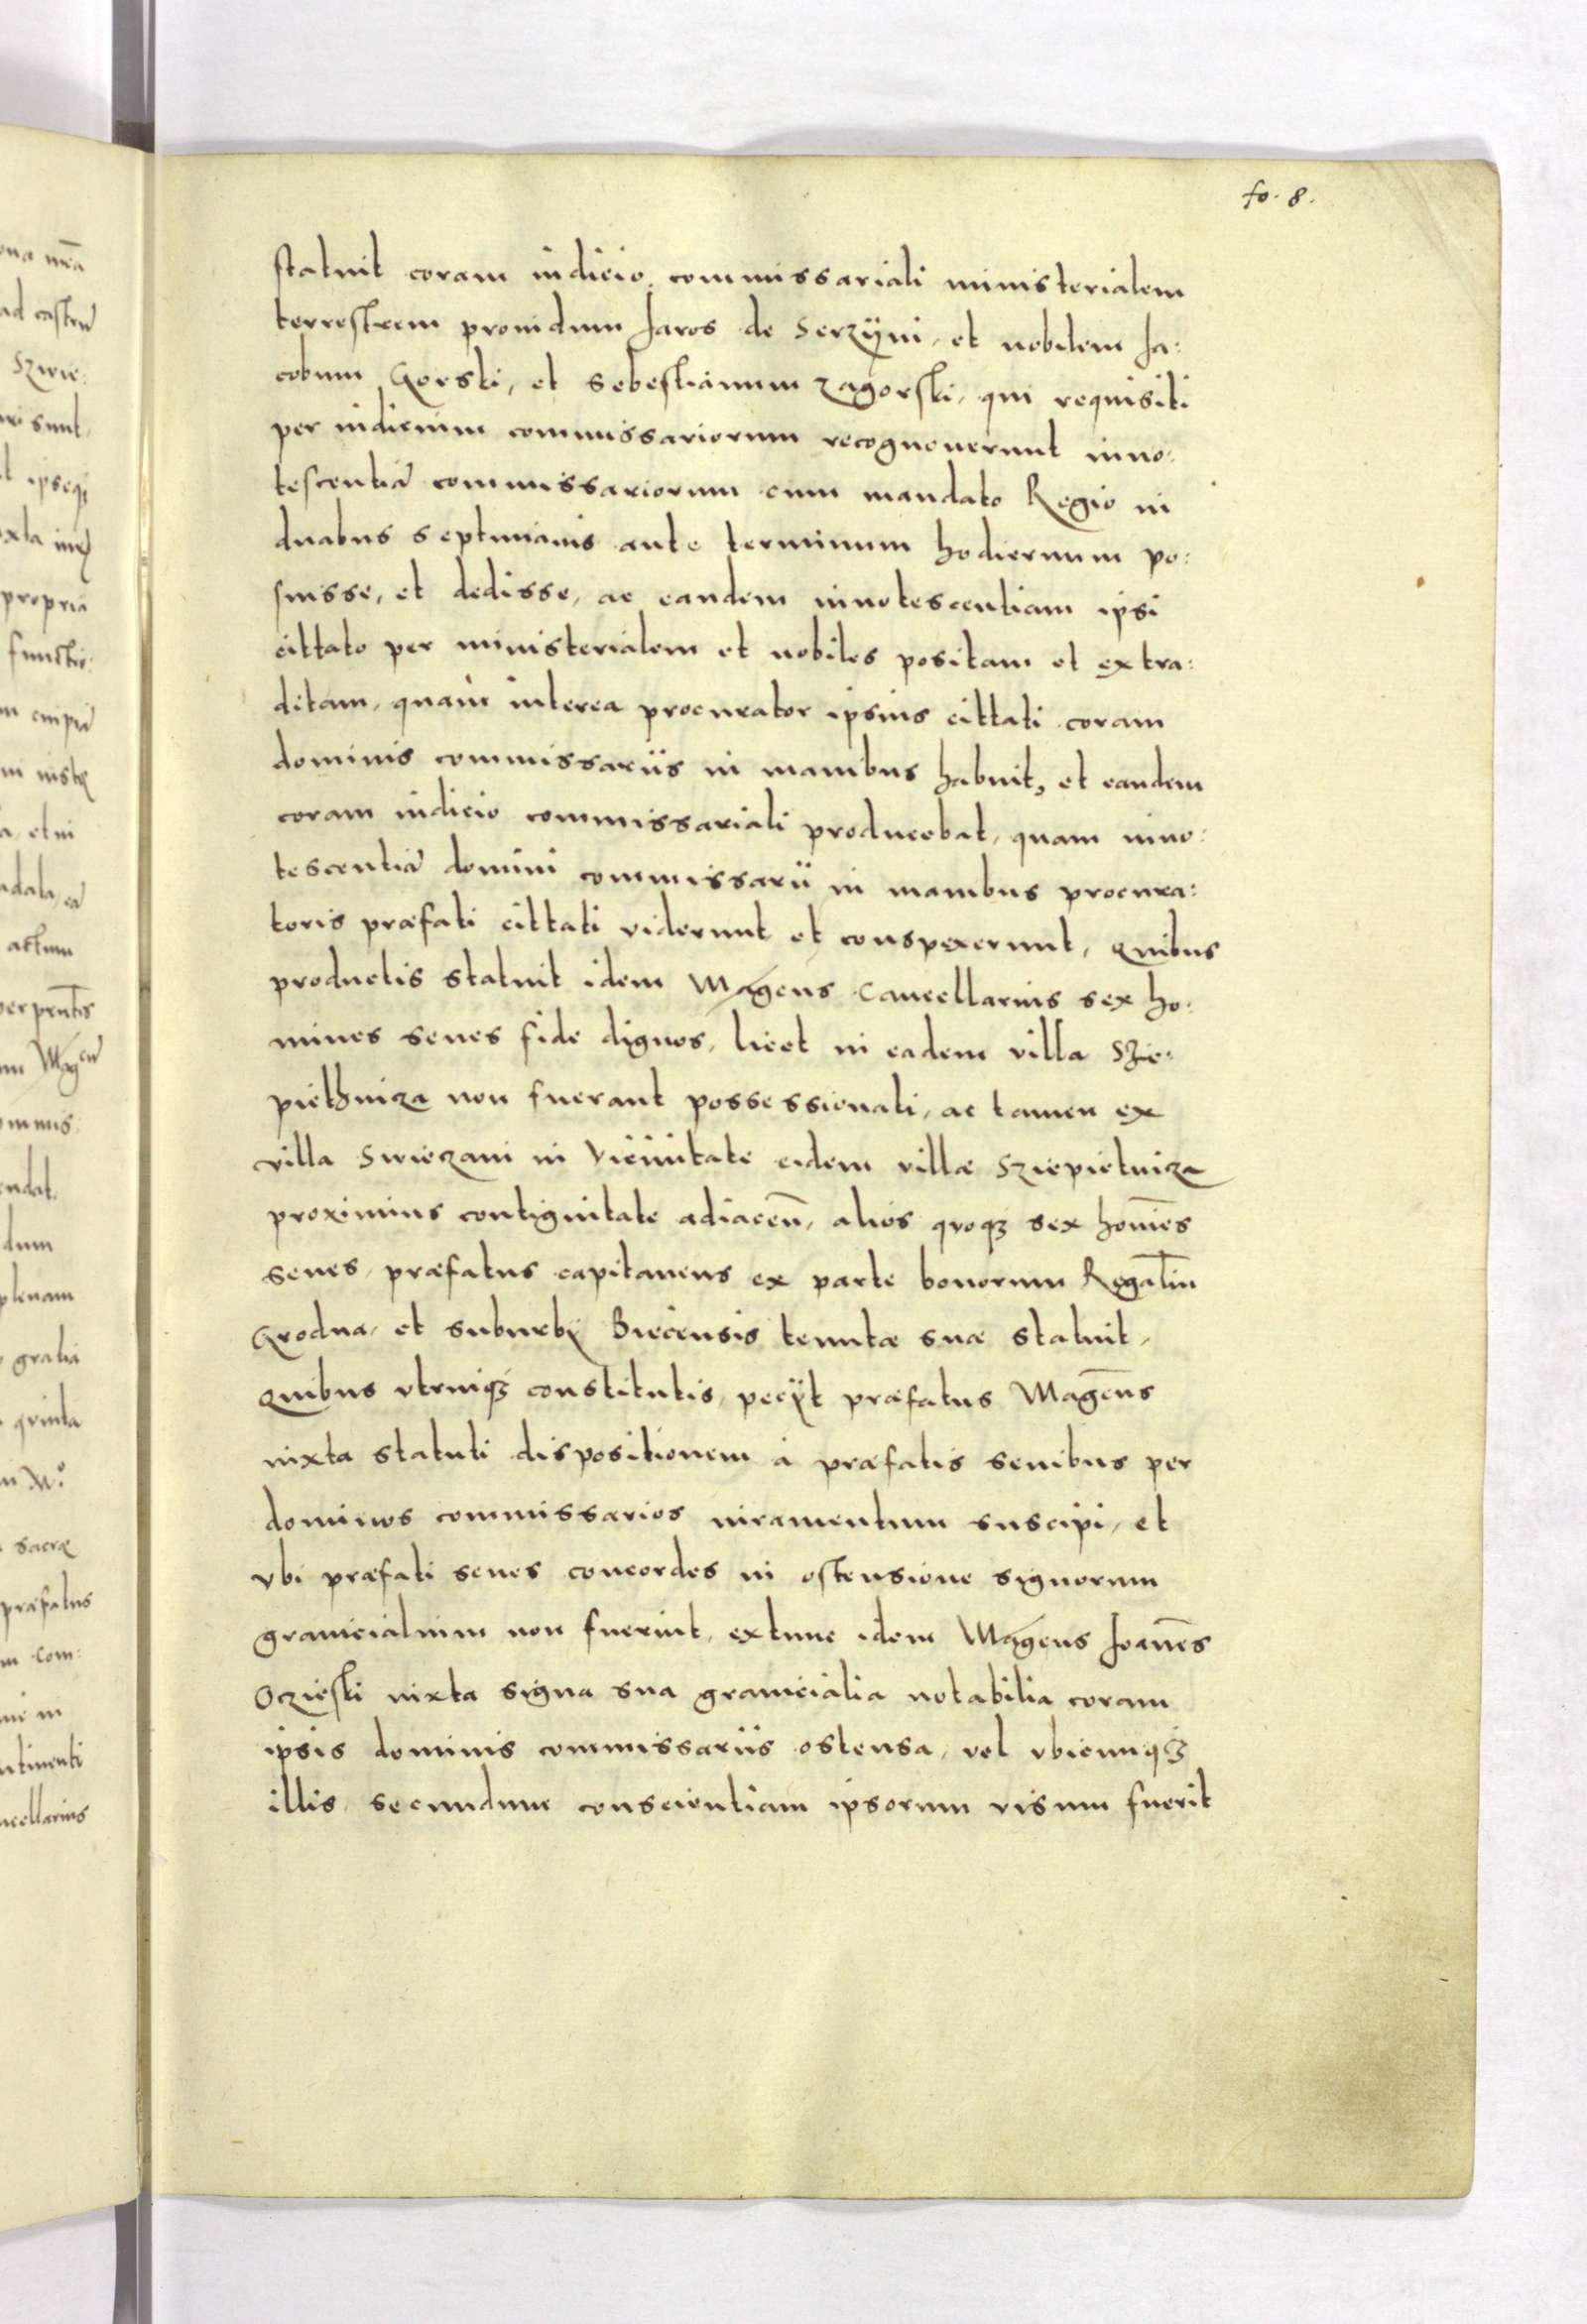 fo. 8.
statuit coram iudicio commissariali ministerialem
terrestrem prouidum Jaros de Serzÿni, et nobilem Ja:
cobum Gorski, et Sebestianum Zagorski, qui requisiti
per iudicium commissariorum recognouerunt inno:
tescentiā commissariorum cum mandato Regio in
duabus septimanis ante terminum hodiernum po:
suisse, et dedisse, ac eandem innotescentiam ipsi
cittato per ministerialem et nobiles positam et extra:
ditam, quam interea procurator ipsius cittati coram
dominis commissariis in manibus habuit, et eandem
coram iudicio commissariali producebat, quam inno:
tescentiā domini commissarii in manibus procura:
toris præfati cittati viderunt et conspexerunt, Quibus
productis statuit idem Magcus Cancellarius sex ho:
mines senes fide dignos, licet in eadem villa Szie:
piethniza non fuerant possessionati, ac tamen ex
villa Swiezani in vicinitate eidem villæ Sziepietniza
proximius contiguitate adiaceñ, alios quoqз sex homīes
senes, præfatus capitaneus ex parte bonorum Regaliū
Grodna, et suburbÿ Biecensis tenutæ suæ statuit,
Quibus vtrinqз constitutis, pecÿt præfatus Magcūs
iuxta statuti dispositionem à præfatis senibus per
dominos commissarios iuramentum suscipi, et
vbi præfati senes concordes in ostensione signorum
granicialium non fuerint, extunc idem Magcus Joañes
Oczieski iuxta signa sua granicialia notabilia coram
ipsis dominis commissariis ostensa, vel vbicunqз
illis secundum conscientiam ipsorum visum fuerit